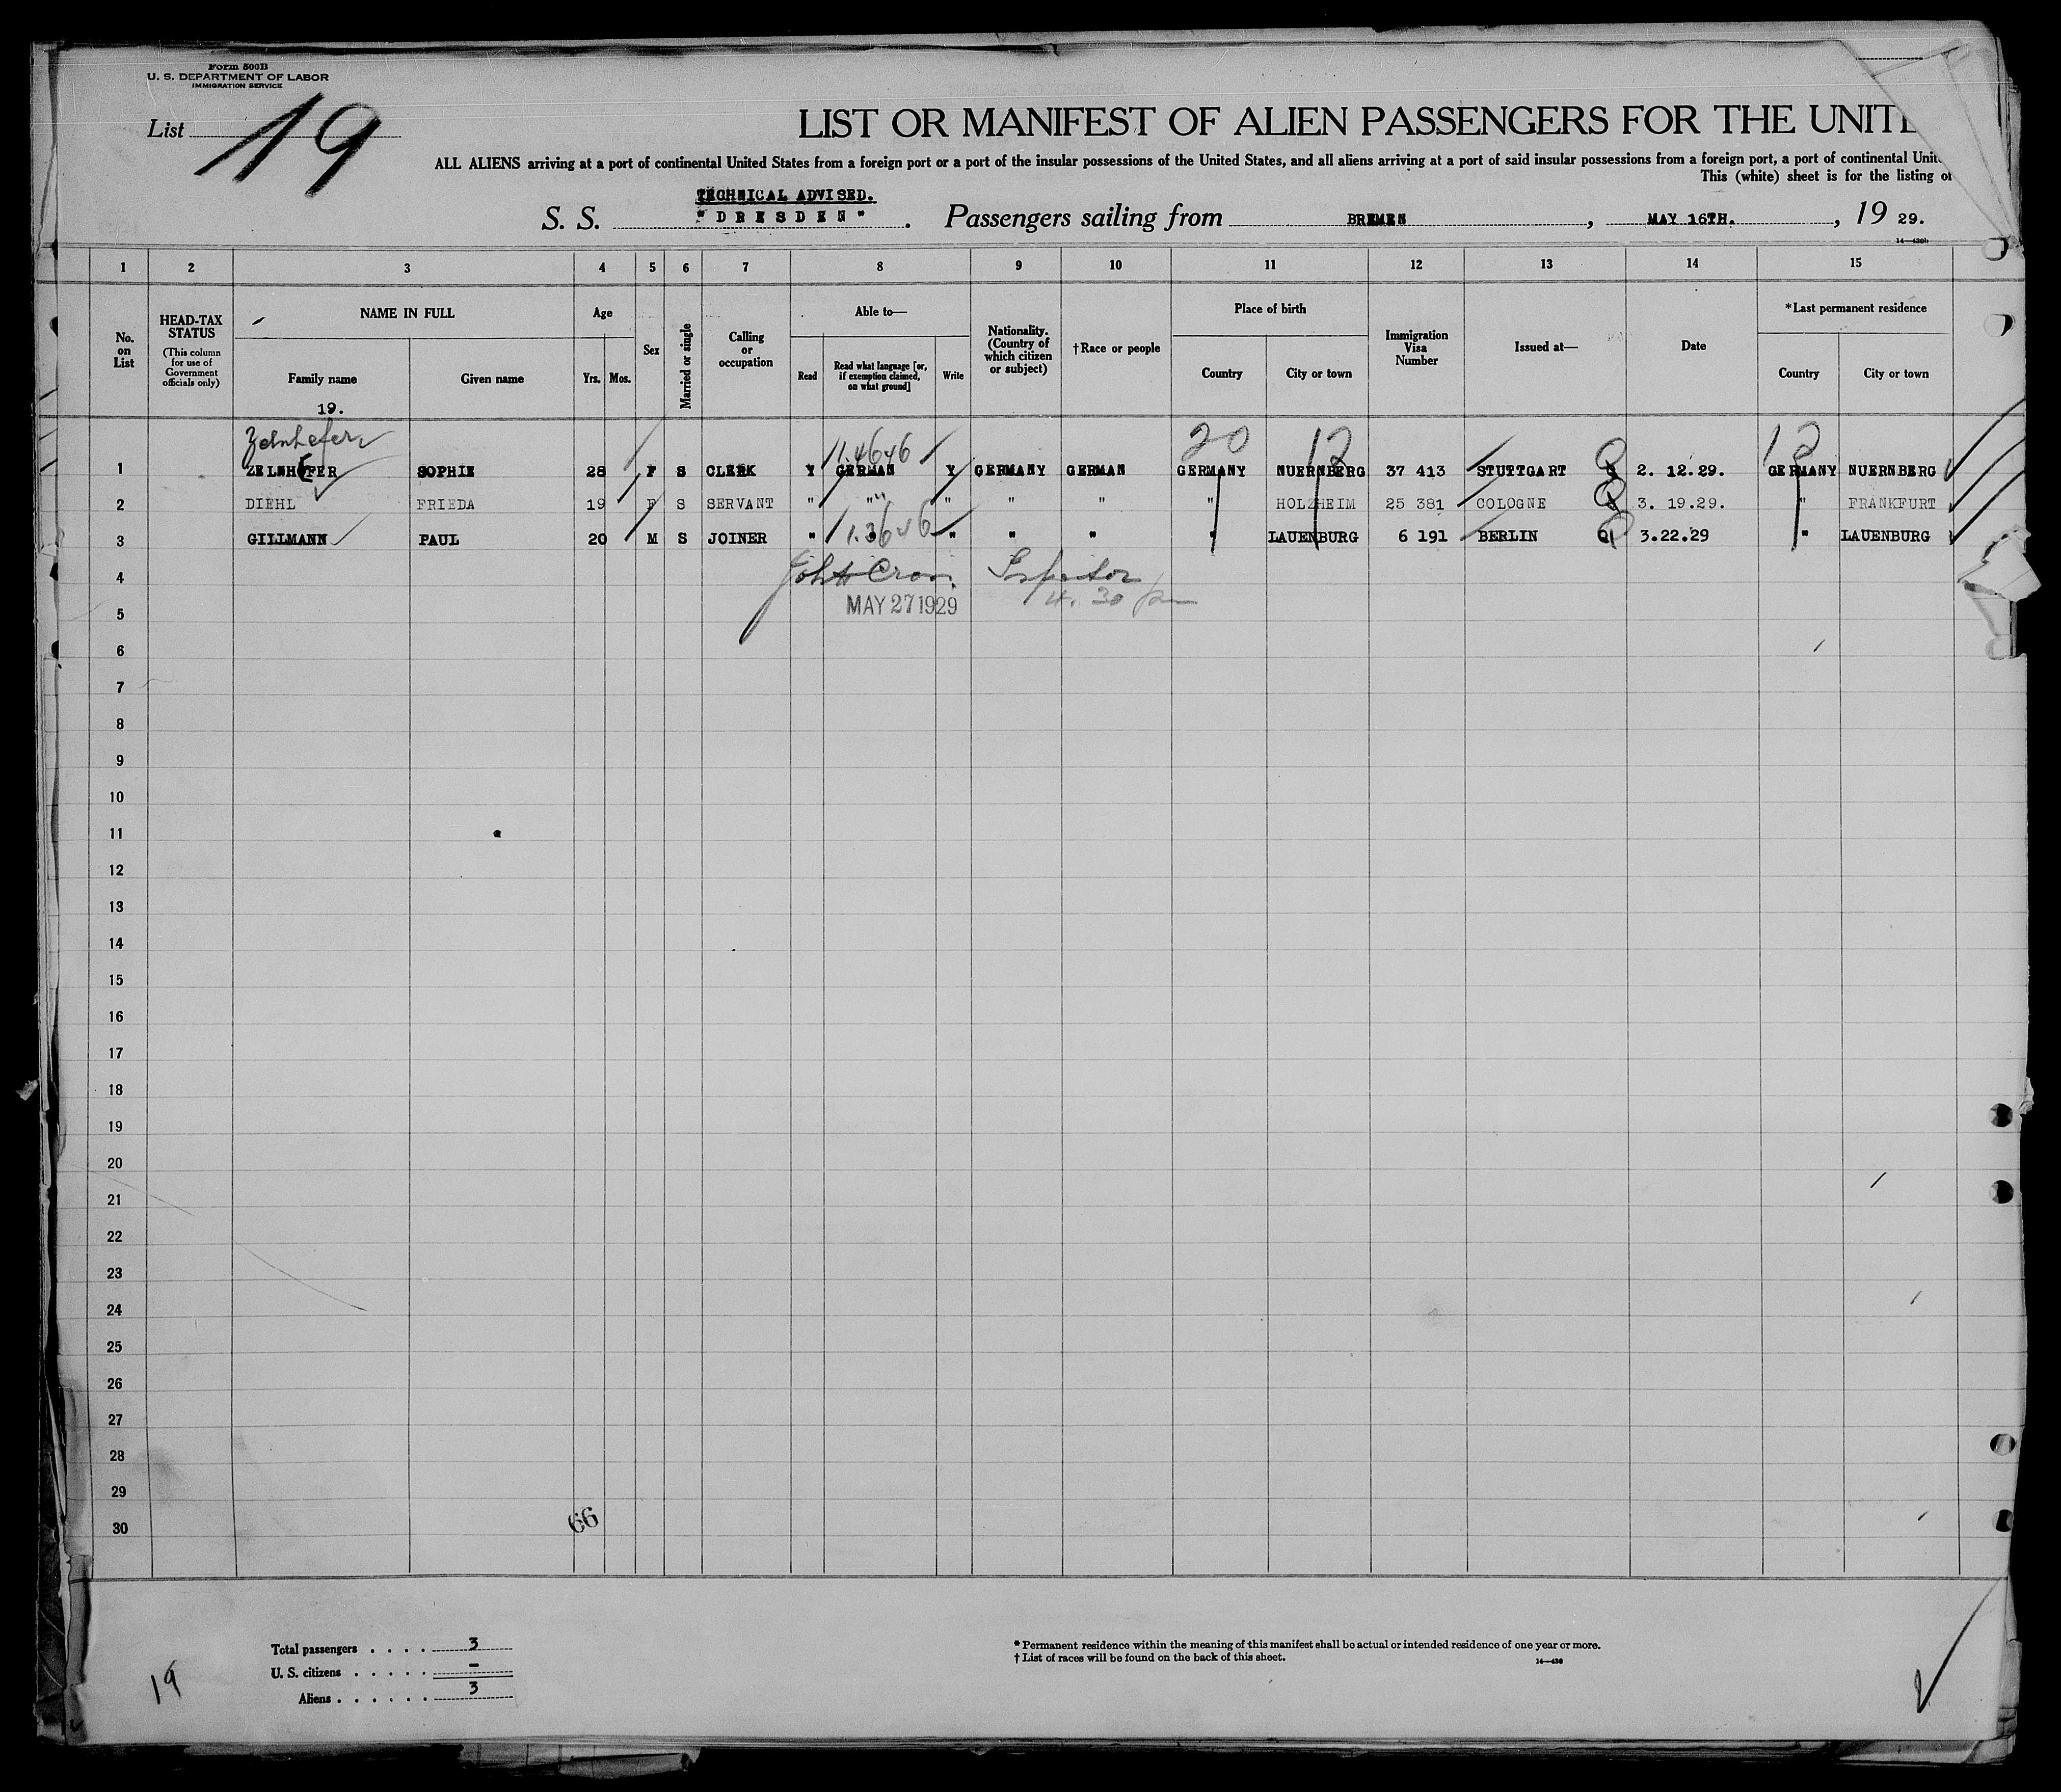 Form 500B
U. S. DEPARTMENT OF LABOR
IMMIGRATION SERVICE
List 19
LIST OR MANIFEST OF ALIEN PASSENGERS FOR THE UNITE
ALL ALIENS arriving at a port of continental United States from a foreign port or a port of the insular possessions of the United States, and all aliens arriving at a port of said insular possessions from a foreign port, a port of continental Unite
This (white) sheet is for the listing of
TECHNICAL ADVISED.
S. S. "DRESDEN". Passengers sailing from BREMEN, MAY 16TH., 19 29.
14—430b
1 2 3 4 5 6 7 8 9 10 11 12 13 14 15
No. on List
HEAD-TAX STATUS
(This column for use of Government officials only)
NAME IN FULL
Family name
Given name
Age
Yrs. Mos.
Sex
Married or single
Calling or occupation
Able to—
Read
Read what language [or, if exemption claimed, on what ground]
Write
Nationality. (Country of which citizen or subject)
†Race or people
Place of birth
Country
City or town
Immigration Visa Number
Issued at—
Date
*Last permanent residence
Country
City or town
19.
Zelnhefer 11.4646 20 12 12
1 ZELNHEFER SOPHIE 28 F S CLERK Y GERMAN Y GERMANY GERMAN GERMANY NUERNBERG 37 413 STUTTGART Q 2. 12.29. GERMANY NUERNBERG
2 DIEHL FRIEDA 19 F S SERVANT " "" " " " " HOLZHEIM 25 381 COLOGNE Q 3. 19.29. " FRANKFURT
3 GILLMANN PAUL 20 M S JOINER " " " " " " LAUENBURG 6 191 BERLIN Q 3.22.29 " LAUENBURG
4 Inspector
5 MAY 27 1929 4. 30 pm
6
7
8
9
10
11
12
13
14
15
16
17
18
19
20
21
22
23
24
25
26
27
28
29
30
66
Total passengers . . . . 3
U. S. citizens . . . . . -
Aliens . . . . . . 3
19
* Permanent residence within the meaning of this manifest shall be actual or intended residence of one year or more.
† List of races will be found on the back of this sheet.
14—430